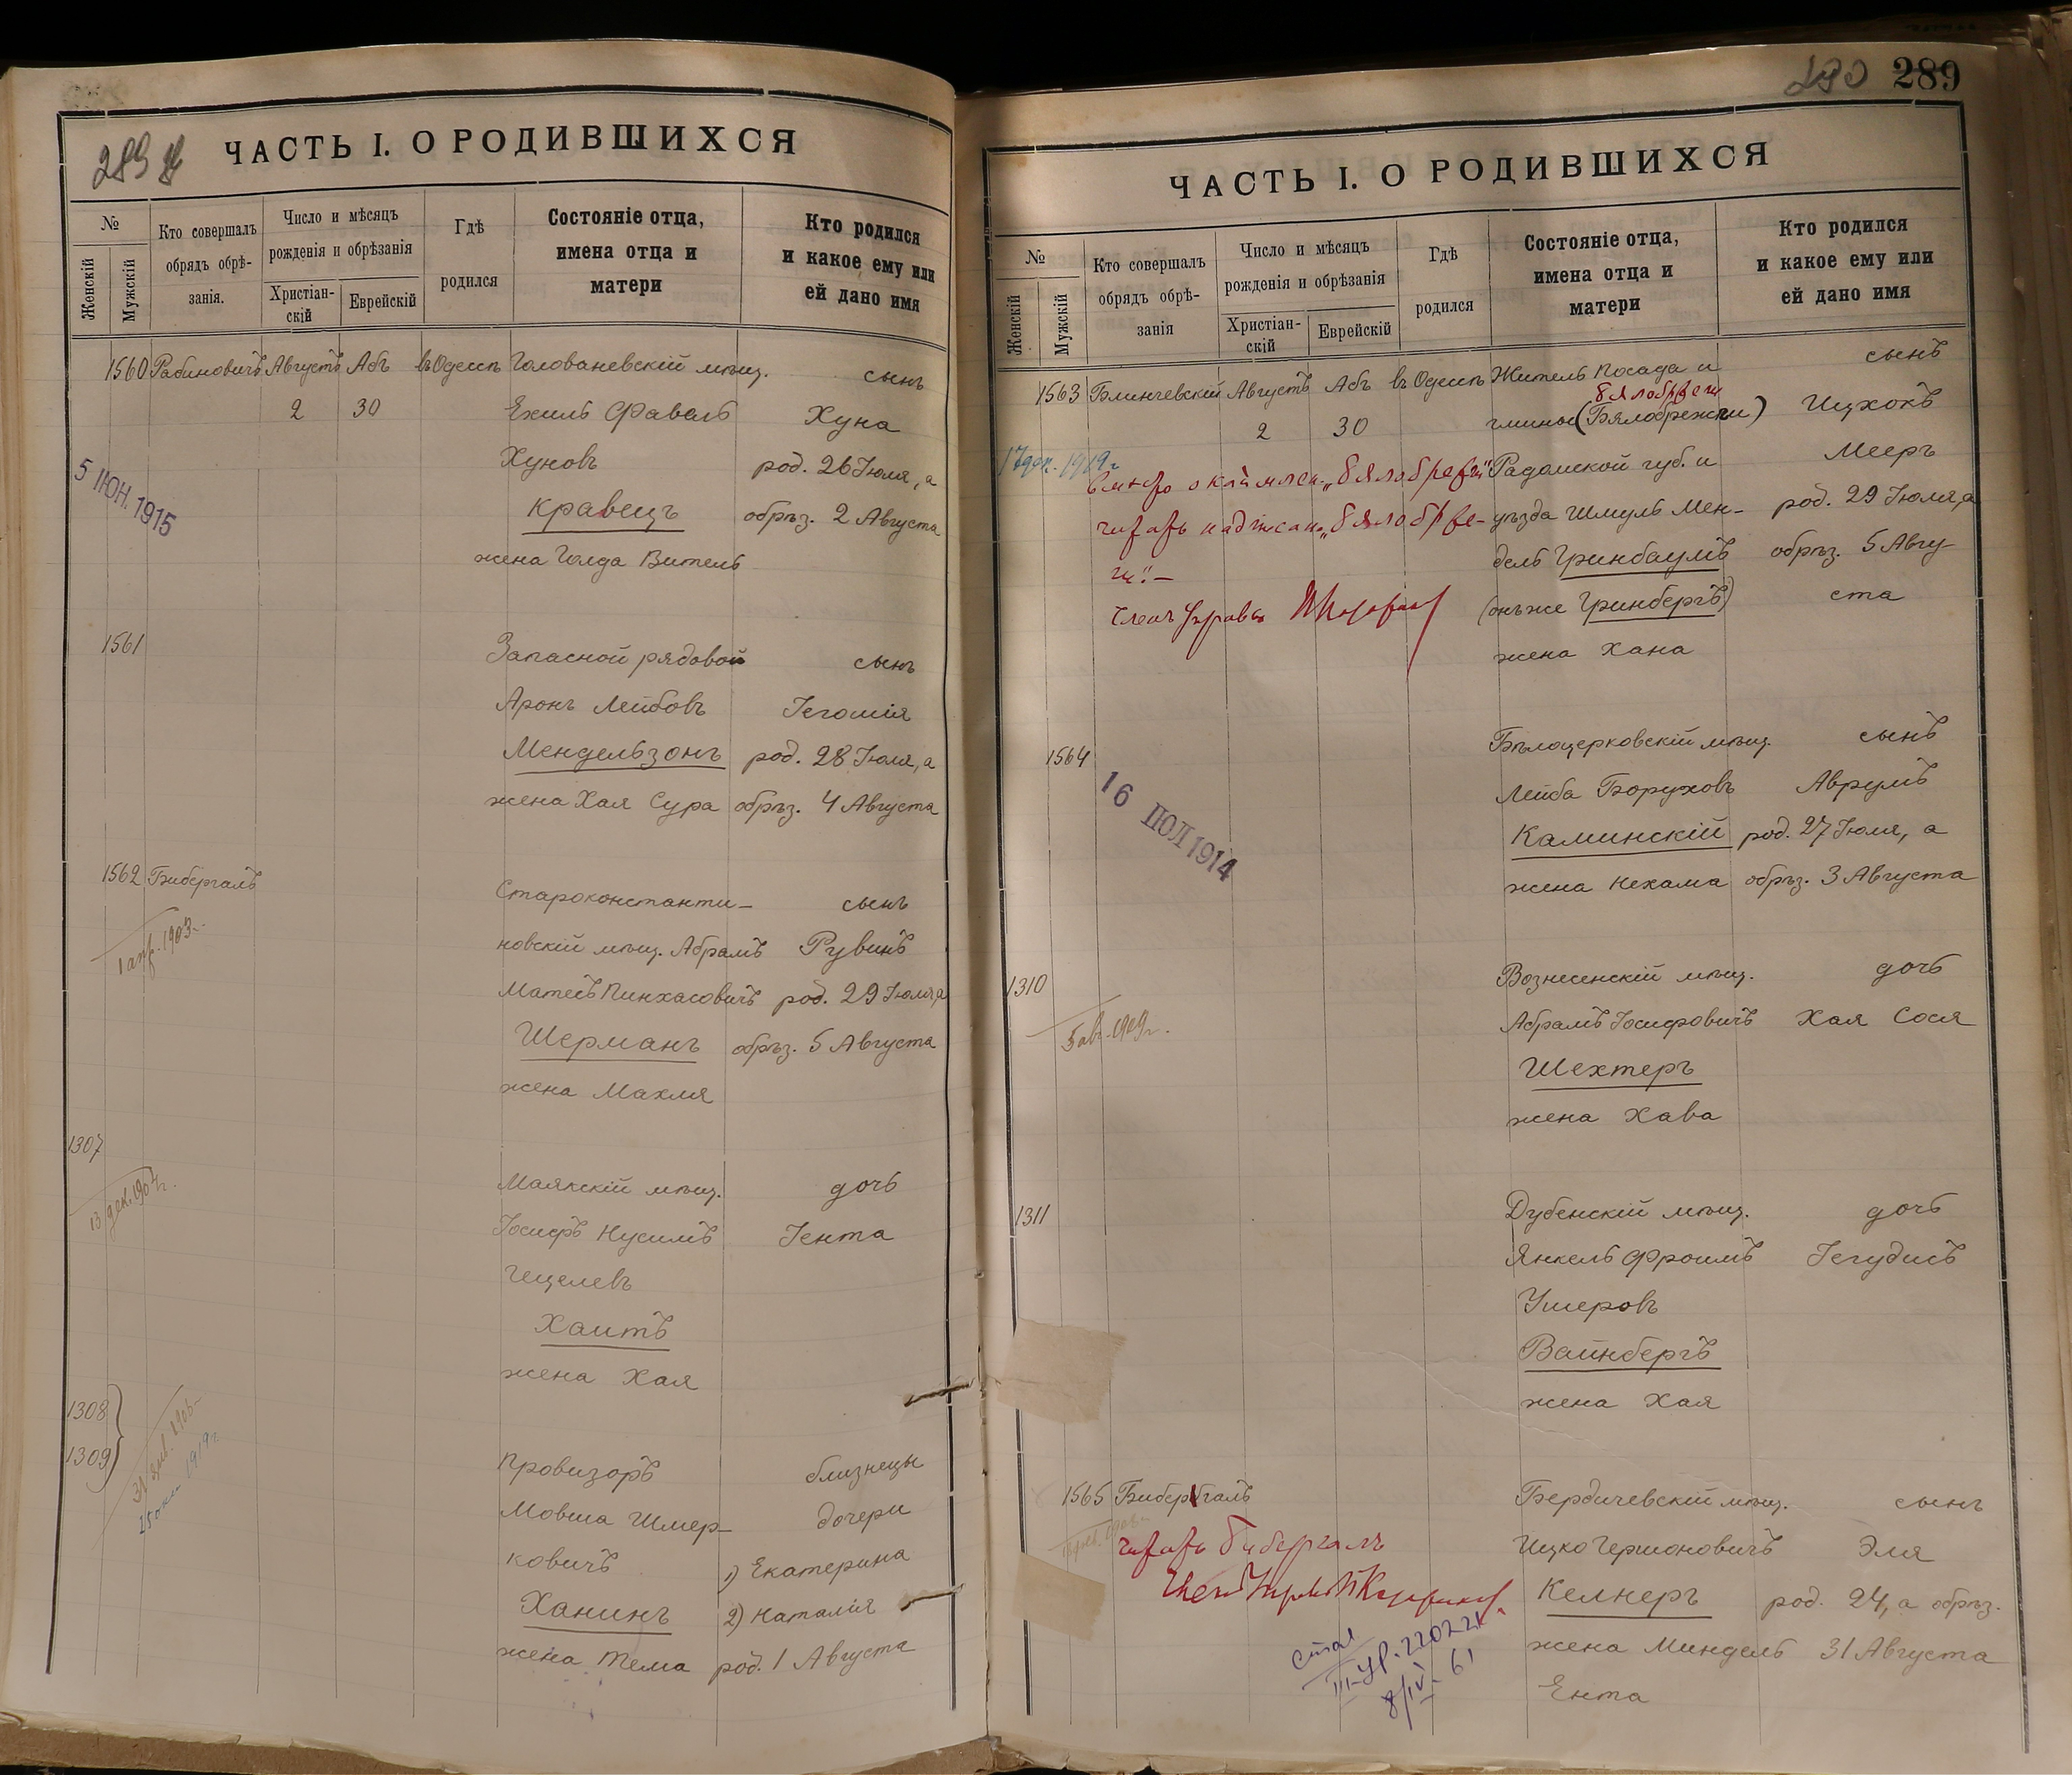 289
ЧАСТЬ I. О РОДИВШИХСЯ
№
Женскій
Мужскій
Кто совершалъ
обрядъ обрѣ-
занія.
Число и мѣсяцъ
рожденія и обрѣзанія
Христіан-
скій
Еврейскій
Гдѣ
родился
Состояніе отца,
имена отца и
матери
Кто родился
и какое ему или
ей дано имя
1560 Рабиновичъ Августъ Абъ въ Одессѣ Голованевскій мѣщ. сынъ
2 30 Ехиль Фавель Хуна
Хуновъ род. 26 Іюля, а
Кравецъ обрѣз. 2 Августа
5 ІЮН. 1915
жена Голда Витель
1561 Запасной рядовой сынъ
Аронъ Лейбовъ Іегошія
Мендельзонъ род. 28 Іюля, а
жена Хая Сура обрѣз. 4 Августа
1562 Бибергалъ Староконстанти- сынъ
1 апр. 1903
новскій мѣщ. Абрамъ Рувинъ
Матесъ Пинхасовичъ род. 29 Іюля, а
Шерманъ обрѣз. 5 Августа
жена Махля
1307 Маякскій мѣщ. дочь
13 дек. 1904 г.
Іосифъ Нусимъ Іента
Гецелевъ
Хаитъ
жена Хая
1308
1309
Провизоръ близнецы
Мовша Шмер- дочери
ковичъ 1) Екатерина
Ханинъ 2) Наталія
жена Тема род. 1 Августа
290 289
ЧАСТЬ I. О РОДИВШИХСЯ
№
Женскій
Мужскій
Кто совершалъ
обрядъ обрѣ-
занія
Число и мѣсяцъ
рожденія и обрѣзанія
Христіан-
скій
Еврейскій
Гдѣ
родился
Состояніе отца,
имена отца и
матери
Кто родился
и какое ему или
ей дано имя
1563 Блинчевскій Августъ Абъ въ Одессѣ Житель посада и сынъ
2 30 гмины (Бялобрежги) Ицхокъ
Радомской губ. и Мееръ
уѣзда Шмуль Мен- род. 29 Іюля, а
читать
дель Гринбаумъ обрѣз. 5 Авгу-
(онъ же Гринбергъ) ста
Членъ Управы
жена Хана
1564 Бѣлоцерковскій мѣщ. сынъ
16 ІЮЛ 1914
Лейба Боруховъ Аврумъ
Каминскій род. 27 Іюля, а
жена Нехама обрѣз. 3 Августа
1310 Вознесенскій мѣщ. дочь
5 авг. 1909 г.
Абрамъ Іосифовичъ Хая Сося
Шехтеръ
жена Хава
1311 Дубенскій мѣщ. дочь
Янкель Фроимъ Іегудисъ
Ушеровъ
Вайнбергъ
жена Хая
1565 Бибергалъ Бердичевскій мѣщ. сынъ
читать Бибергалъ
Ицко Гершоновичъ Эля
Келнеръ род. 24, а обрѣз.
жена Миндель 31 Августа
Ента
8/IV 61